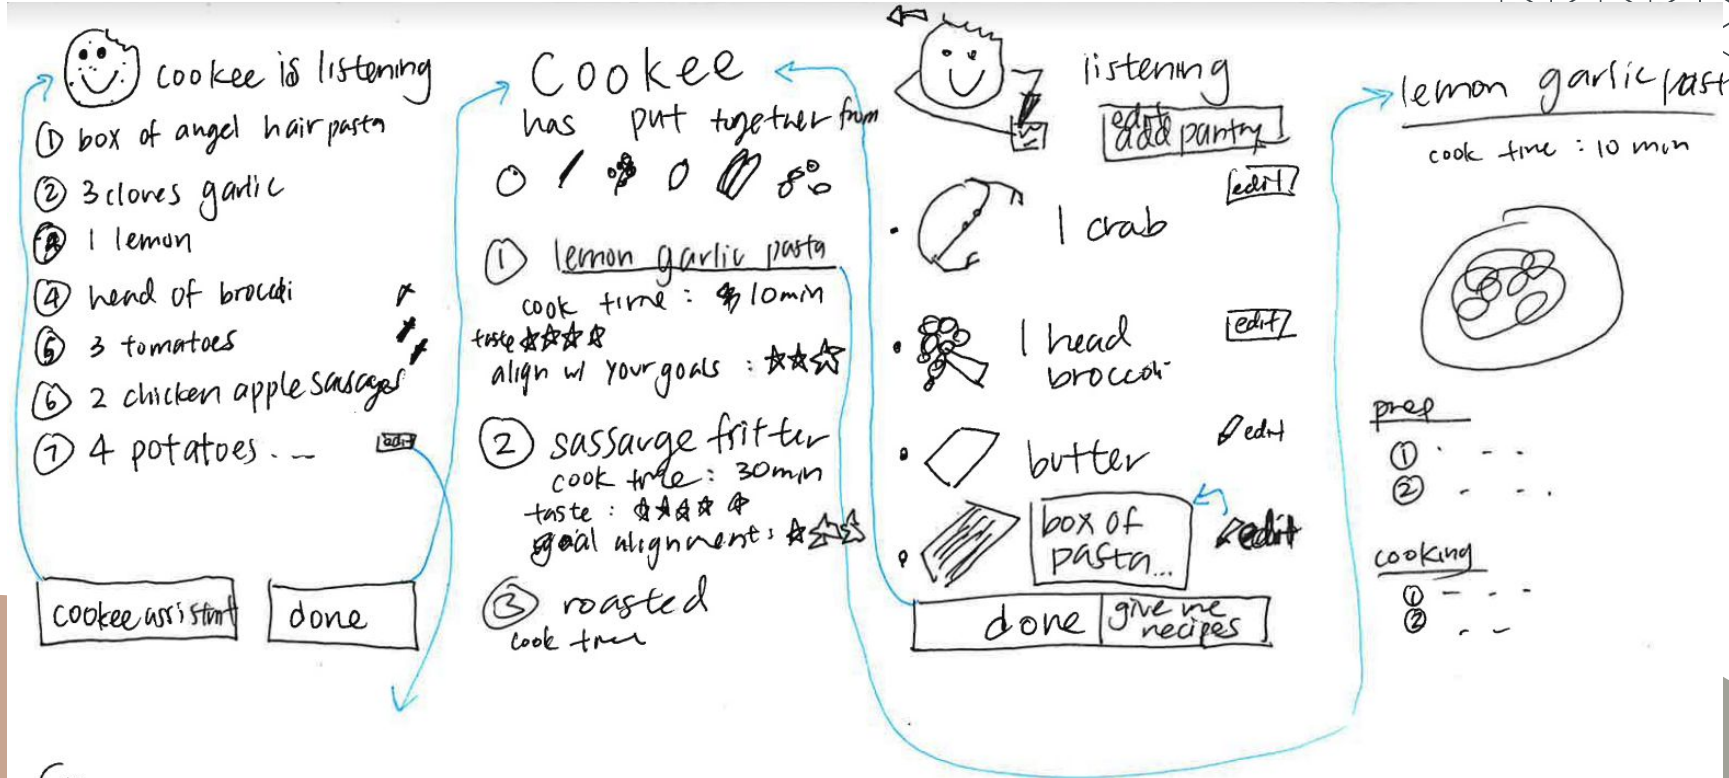 cookee is listening
① box of angel hair pasta
② 3 cloves garlic
③ 1 lemon
④ head of broccoli
⑤ 3 tomatoes
⑥ 2 chicken apple sausages
⑦ 4 potatoes...
edit
cookee assistant
done
Cookee
has put together from
① lemon garlic pasta
cook time: 10min
taste ☆☆☆☆
align w/ your goals: ★★☆
② sassauge fritter
cook time: 30min
taste: ☆☆☆☆☆
goal alignment: ★☆☆
③ roasted
cook time
listening
edit
add pantry
edit
1 crab
edit
1 head
broccoli
edit
butter
edit
box of
pasta...
done
give me
recipes
lemon garlic past
cook time: 10 min
prep
①
②
cooking
①
②